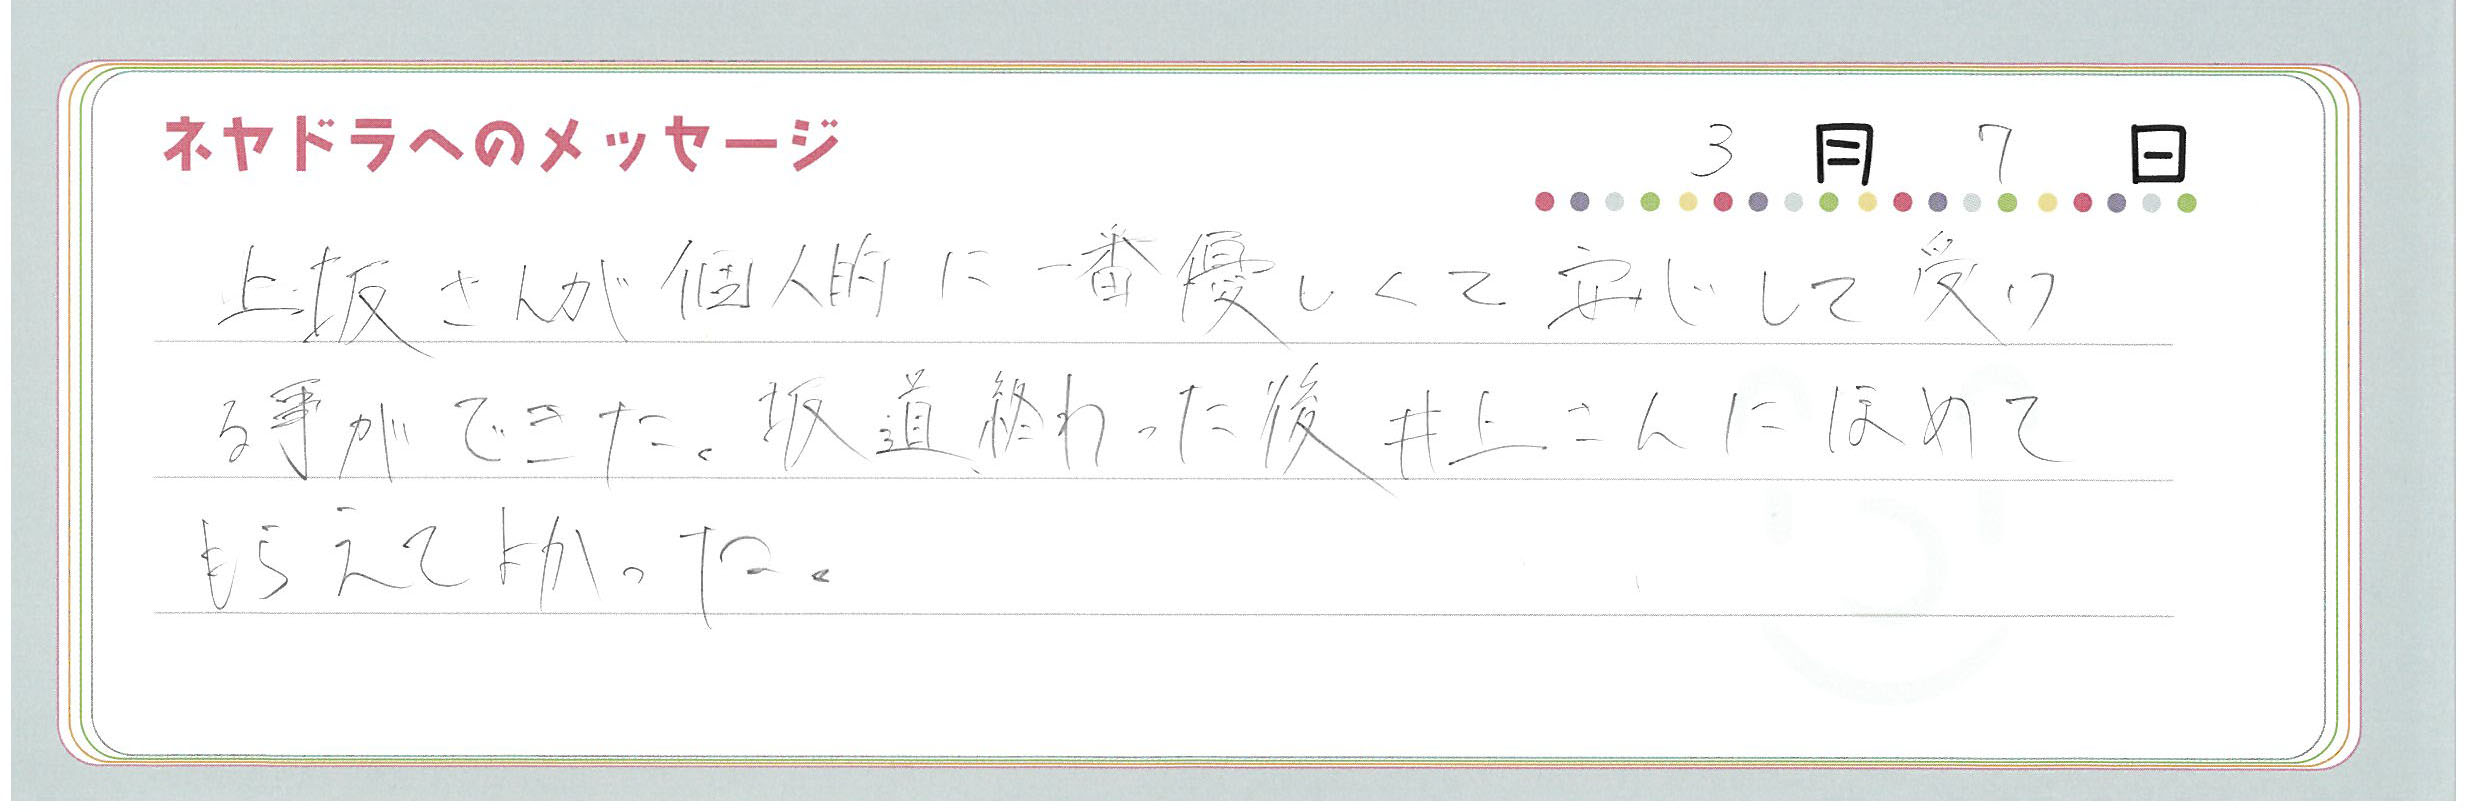 ネヤドラへのメッセージ
3月7日
上坂さんが個人的に一番優しくて安心して受け
る事ができた。坂道終わった後井上さんにほめて
もらえてよかった。